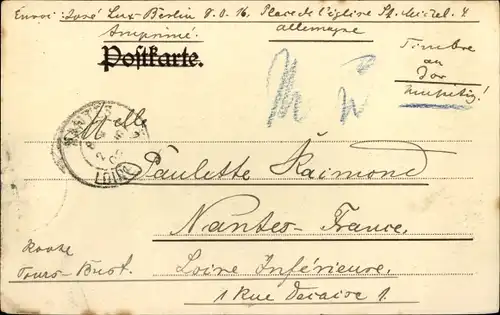 Envoi: José Lux-Berlin S.O. 16, Place de l'église St. Michel. 4
Imprimé.
allemagne
Postkarte.
Timbre
au
Dos
Melle
LOIRE
Paulette Raimond
Nantes-France.
Route
Tours-Brest.
Loire Inférieure.
1 Rue 1.